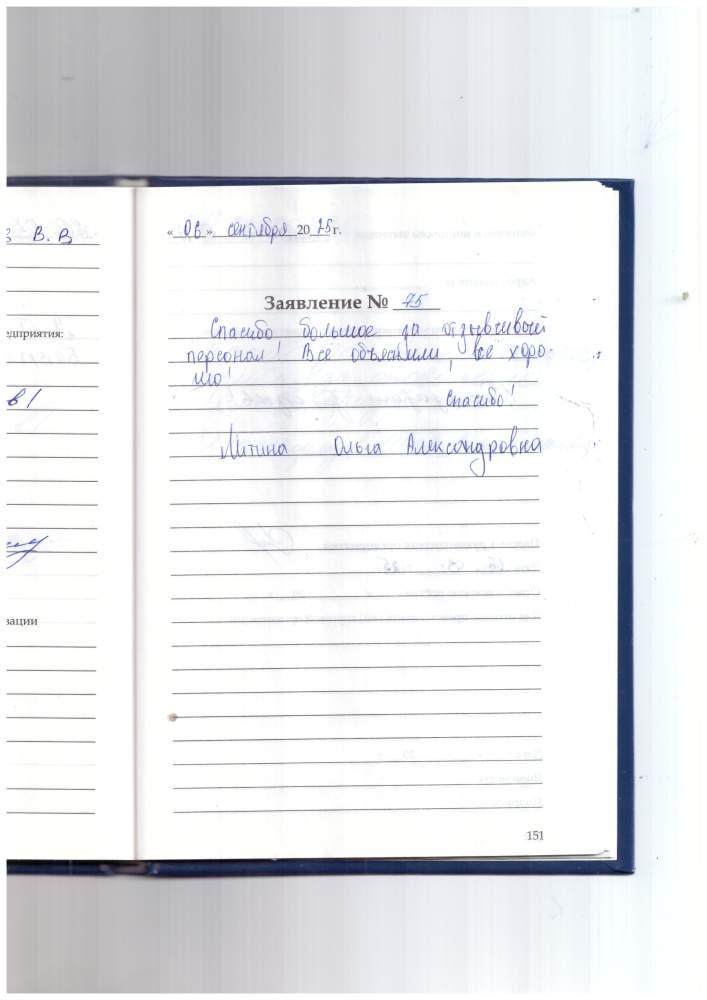 В. В
едприятия:
зации
« 06 » сентября 20 25 г.
Заявление № 75
Спасибо большое за отзывчивый
персонал! Всё объяснили, всё хоро-
шо!
Спасибо!
Литина Ольга Александровна
151